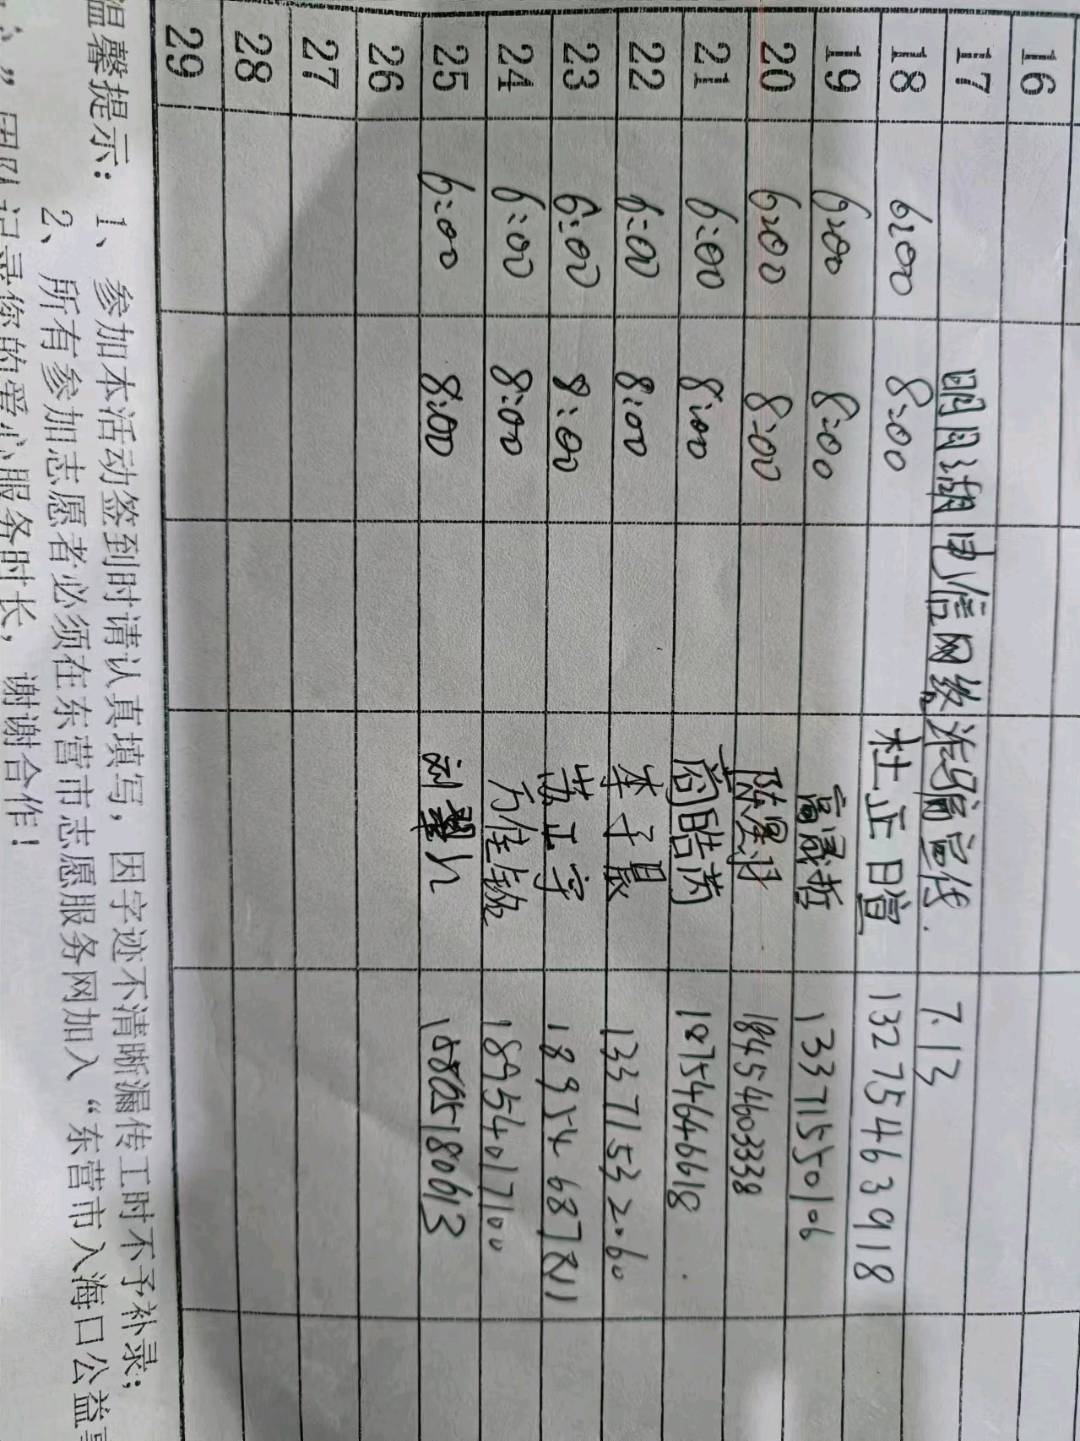 16
17 明月湖电信网络诈骗宣传. 7.13
18 6:00 8:00 杜正日萱 13275463918
19 6:00 8:00 高晟哲 13371550106
20 6:00 8:00 陈星羽 18454603338
21 6:00 8:00 商皓芮 18754646618
22 6:00 8:00 李子晨 13371532060
23 6:00 8:00 苏工宇
24 6:00 8:00 18954017100
25 6:00 8:00
26
27
28
29
温馨提示: 1、参加本活动签到时请认真填写, 因字迹不清晰漏传工时不予补录;
2、所有参加志愿者必须在东营市志愿服务网加入“东营市入海口公益
”团队记录你的爱心服务时长, 谢谢合作!